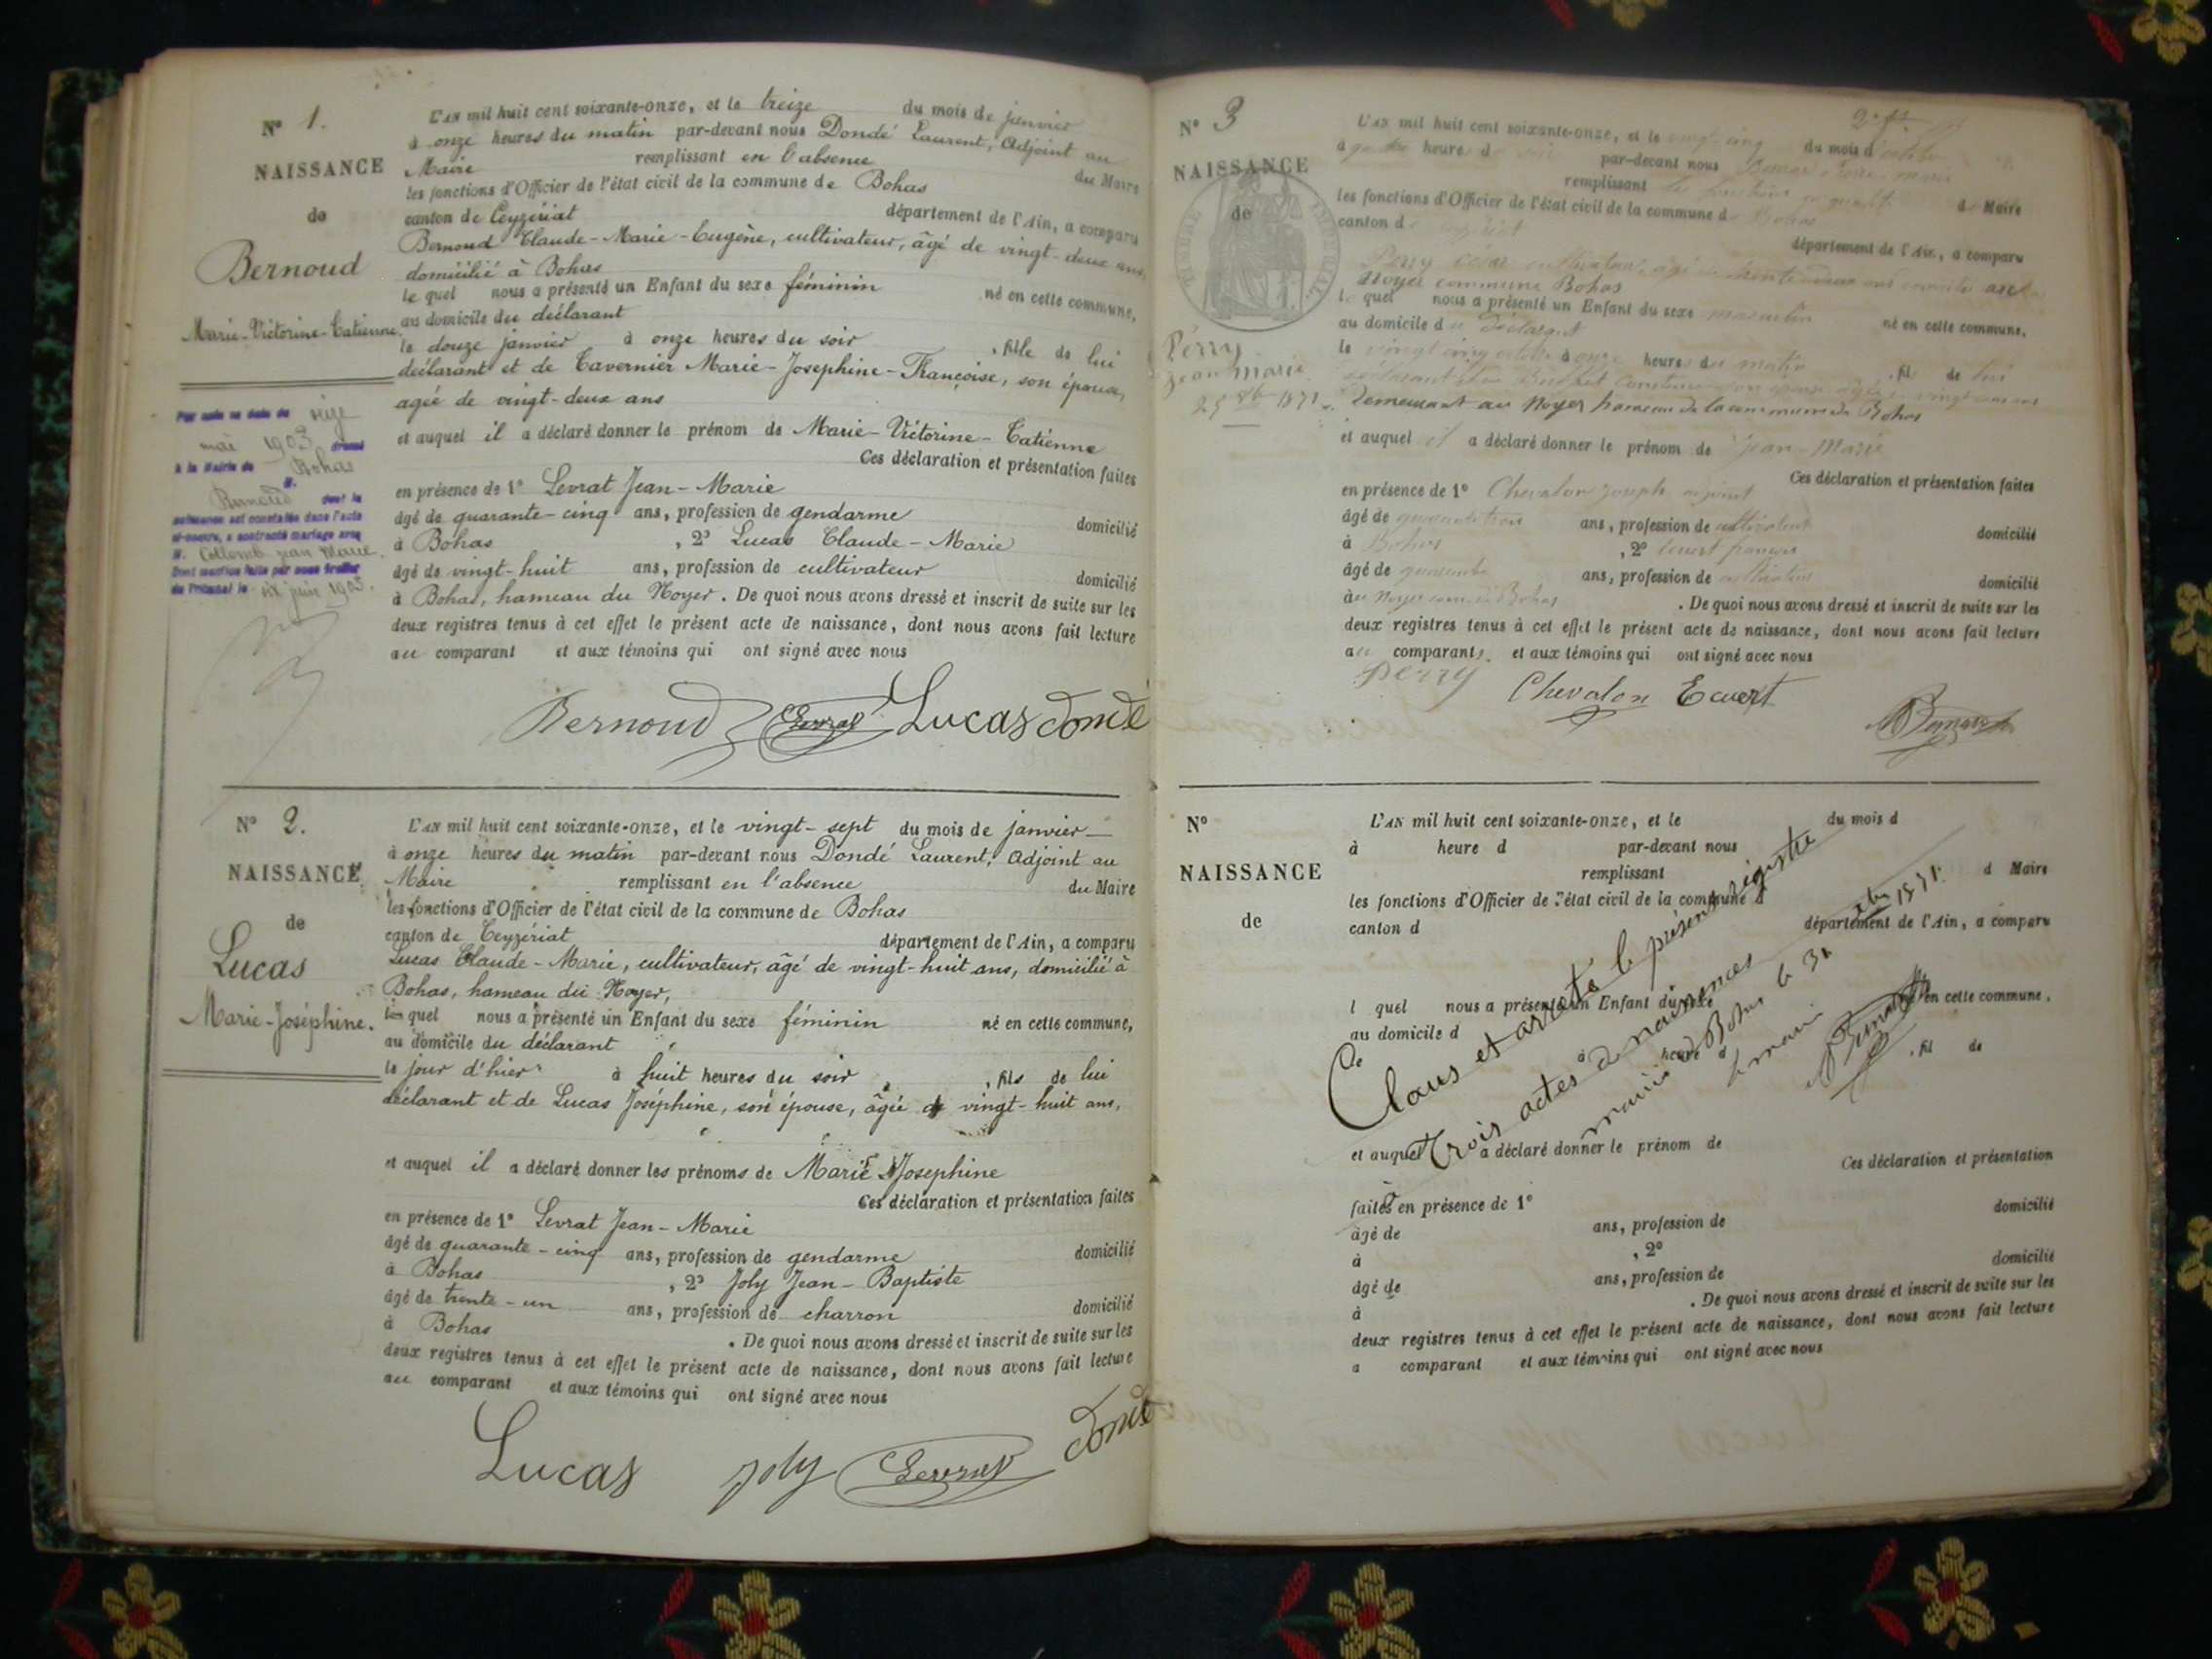 N° 1.
NAISSANCE
de
Bernoud
Marie-Victorine-Tatienne.
Par acte en date du seize
mai 1903 dressé
à la Mairie de Bohas
M.
Bernoud dont la
naissance est constatée dans l'acte
ci-contre, a contracté mariage avec
M. Collomb Jean Marie.
Dont mention faite par nous Greffier
du Tribunal le six juin 1903.
L'AN mil huit cent soixante-onze, et le treize du mois de janvier
à onze heures du matin par-devant nous Dondé Laurent, Adjoint au
Maire remplissant en l'absence du Maire
les fonctions d'Officier de l'état civil de la commune de Bohas
canton de Ceyzériat département de l'Ain, a comparu
Bernoud Claude-Marie-Eugène, cultivateur, âgé de vingt-deux ans,
domicilié à Bohas
le quel nous a présenté un Enfant du sexe féminin né en cette commune,
au domicile du déclarant
le douze janvier à onze heures du soir, fille de lui
déclarant et de Tavernier Marie-Josephine-Françoise, son épouse,
agée de vingt-deux ans
et auquel il a déclaré donner le prénom de Marie-Victorine-Tatienne
Ces déclaration et présentation faites
en présence de 1° Levrat Jean-Marie
âgé de quarante-cinq ans, profession de gendarme domicilié
à Bohas, 2° Lucas Claude-Marie
âgé de vingt-huit ans, profession de cultivateur domicilié
à Bohas, hameau du Noyer. De quoi nous avons dressé et inscrit de suite sur les
deux registres tenus à cet effet le présent acte de naissance, dont nous avons fait lecture
au comparant et aux témoins qui ont signé avec nous
Bernoud Levrat Lucas Dondé
N° 2.
NAISSANCE
de
Lucas
Marie-Joséphine.
L'AN mil huit cent soixante-onze, et le vingt-sept du mois de janvier
à onze heures du matin par-devant nous Dondé Laurent, Adjoint au
Maire remplissant en l'absence du Maire
les fonctions d'Officier de l'état civil de la commune de Bohas
canton de Ceyzériat département de l'Ain, a comparu
Lucas Claude-Marie, cultivateur, âgé de vingt-huit ans, domicilié à
Bohas, hameau du Noyer,
le quel nous a présenté un Enfant du sexe féminin né en cette commune,
au domicile du déclarant
le jour d'hier à huit heures du soir, fils de lui
déclarant et de Lucas Joséphine, son épouse, âgée de vingt-huit ans,
et auquel il a déclaré donner les prénoms de Marie Josephine
Ces déclaration et présentation faites
en présence de 1° Levrat Jean-Marie
âgé de quarante-cinq ans, profession de gendarme domicilié
à Bohas, 2° Joly Jean-Baptiste
âgé de trente-un ans, profession de charron domicilié
à Bohas. De quoi nous avons dressé et inscrit de suite sur les
deux registres tenus à cet effet le présent acte de naissance, dont nous avons fait lecture
au comparant et aux témoins qui ont signé avec nous
Lucas Joly Levrat Dondé
N° 3
NAISSANCE
de
TIMBRE IMPÉRIAL
Perry
Jean Marie
25 8b 1871
L'AN mil huit cent soixante-onze, et le vingt cinq du mois d'octobre
à heure d par-devant nous
remplissant les fonctions d Maire
les fonctions d'Officier de l'état civil de la commune d Bohas
canton d département de l'Ain, a comparu
Perry cultivateur, âgé de
Noyer commune Bohas
le quel nous a présenté un Enfant du sexe masculin né en cette commune,
au domicile du Déclarant
le vingt cinq octobre à onze heures du matin, fil de lui
déclarant
Demeurant au Noyer hameau de la commune de Bohas
et auquel il a déclaré donner le prénom de Jean-Marie
Ces déclaration et présentation faites
en présence de 1° Chevalon Joseph adjoint
âgé de ans, profession de cultivateur domicilié
à Bohas, 2° françois
âgé de quarante ans, profession de domicilié
au Noyer Bohas. De quoi nous avons dressé et inscrit de suite sur les
deux registres tenus à cet effet le présent acte de naissance, dont nous avons fait lecture
au comparant, et aux témoins qui ont signé avec nous
Perry Chevalon Ecuert
N°
NAISSANCE
de
L'AN mil huit cent soixante-onze, et le du mois d
à heure d par-devant nous
remplissant d Maire
les fonctions d'Officier de l'état civil de la commune d
canton d département de l'Ain, a comparu
l quel nous a présenté un Enfant du sexe né en cette commune,
au domicile d
le à heure d, fil de
Clos et arrêté le présent registre
De trois actes de naissances
mairie de Bohas le 31 xbre 1871.
Le maire
et auquel a déclaré donner le prénom de
Ces déclaration et présentation
faites en présence de 1° domicilié
âgé de ans, profession de
à, 2° domicilié
âgé de ans, profession de
à. De quoi nous avons dressé et inscrit de suite sur les
deux registres tenus à cet effet le présent acte de naissance, dont nous avons fait lecture
a comparant et aux témoins qui ont signé avec nous